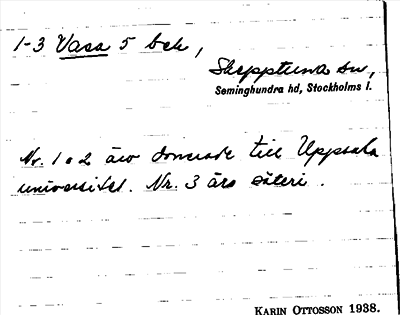 1-3 Vasa 5 beb,
Skepptuna sn,
Seminghundra hd, Stockholms l.
Nr. 1 o 2 äro donerade till Uppsala
universitet. Nr. 3 äro säteri.
KARIN OTTOSSON 1938.